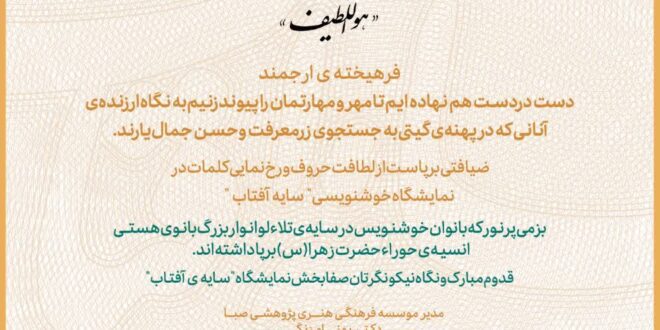 « هواللطیف »
فرهیخته ی ارجمند
دست در دست هم نهاده ایم تا مهر و مهارتمان را پیوند زنیم به نگاه ارزنده ی
آنانی که در پهنه ی گیتی به جستجوی زر معرفت و حسن جمال یارند.
ضیافتی برپاست از لطافت حروف و رخ نمایی کلمات در
نمایشگاه خوشنویسی" سایه آفتاب "
بزمی پر نور که بانوان خوشنویس در سایه ی تلاء لو انوار بزرگ بانوی هستی
انسیه ی حوراء حضرت زهرا (س) برپا داشته اند.
قدوم مبارک و نگاه نیکونگرتان صفابخش نمایشگاه "سایه ی آفتاب"
مدیر موسسه فرهنگی هنری پژوهشی صبا